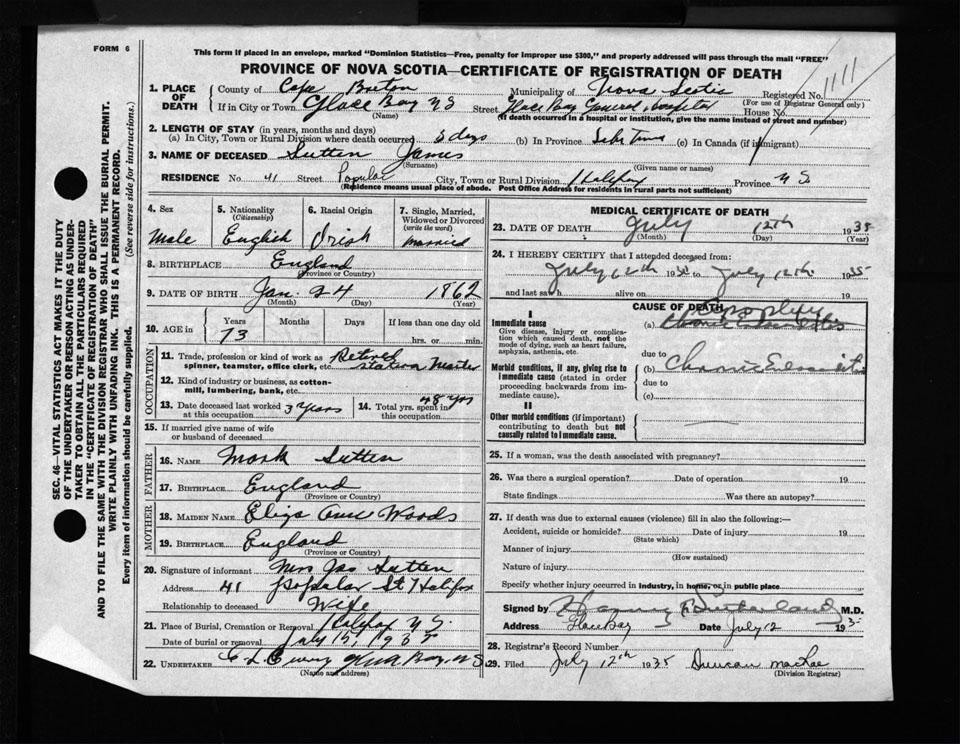 FORM 6
This form if placed in an envelope, marked "Dominion Statistics—Free, penalty for improper use $300," and properly addressed will pass through the mail "FREE"
PROVINCE OF NOVA SCOTIA—CERTIFICATE OF REGISTRATION OF DEATH
1111
1. PLACE OF DEATH
County of Cape Breton Municipality of Nova Scotia Registered No.
(For use of Registrar General only)
If in City or Town Glace Bay N S Street Glace Bay General Hospital House No.
(Name) (If death occurred in a hospital or institution, give the name instead of street and number)
2. LENGTH OF STAY (in years, months and days)
(a) In City, Town or Rural Division where death occurred days (b) In Province Life Time (c) In Canada (if immigrant)
3. NAME OF DECEASED Sutten James
(Surname) (Given name or names)
RESIDENCE No. 41 Street Popular City, Town or Rural Division Halifax Province N S.
(Residence means usual place of abode. Post Office Address for residents in rural parts not sufficient)
4. Sex
Male
5. Nationality
(Citizenship)
English
6. Racial Origin
Irish
7. Single, Married, Widowed or Divorced
(write the word)
Married
8. BIRTHPLACE England
(Province or Country)
9. DATE OF BIRTH Jan. 24 1862
(Month) (Day) (Year)
10. AGE in
Years Months Days If less than one day old
73 hrs. or min.
OCCUPATION
11. Trade, profession or kind of work as spinner, teamster, office clerk, etc. Retired Station Master
12. Kind of industry or business, as cotton-mill, lumbering, bank, etc.
13. Date deceased last worked at this occupation 3 years
14. Total yrs. spent in this occupation 48 yrs
15. If married give name of wife or husband of deceased
FATHER
16. NAME Mark Sutten
17. BIRTHPLACE England
(Province or Country)
MOTHER
18. MAIDEN NAME Eliza Ann Woods
19. BIRTHPLACE England
(Province or Country)
20. Signature of informant Mrs Jas Sutten
Address 41 Popular St Halifax
Relationship to deceased Wife
21. Place of Burial, Cremation or Removal Halifax N S.
Date of burial or removal July 15, 1935
22. UNDERTAKER Glace Bay, N S
(Name and address)
MEDICAL CERTIFICATE OF DEATH
23. DATE OF DEATH July 12th 1935
(Month) (Day) (Year)
24. I HEREBY CERTIFY that I attended deceased from:
July 19 to July 12th 1935
and last saw h alive on 19
CAUSE OF DEATH
I
Immediate cause
Give disease, injury or complication which caused death, not the mode of dying, such as heart failure, asphyxia, asthenia, etc.
(a)
due to
Morbid conditions, if any, giving rise to immediate cause (stated in order proceeding backwards from immediate cause).
(b) Chronic
due to
(c)
II
Other morbid conditions (if important) contributing to death but not causally related to immediate cause.
25. If a woman, was the death associated with pregnancy?
26. Was there a surgical operation? Date of operation 19
State findings Was there an autopsy?
27. If death was due to external causes (violence) fill in also the following:—
Accident, suicide or homicide? Date of injury 19
(State which)
Manner of injury
(How sustained)
Nature of injury
Specify whether injury occurred in industry, in home, or in public place
Signed by Sutherland M.D.
Address Glace Bay Date July 12 193
28. Registrar's Record Number
29. Filed July 12th 1935 Duncan MacRae
(Division Registrar)
SEC. 46—VITAL STATISTICS ACT MAKES IT THE DUTY
OF THE UNDERTAKER OR PERSON ACTING AS UNDER-
TAKER TO OBTAIN ALL THE PARTICULARS REQUIRED
IN THE "CERTIFICATE OF REGISTRATION OF DEATH"
AND TO FILE THE SAME WITH THE DIVISION REGISTRAR WHO SHALL ISSUE THE BURIAL PERMIT.
WRITE PLAINLY WITH UNFADING INK. THIS IS A PERMANENT RECORD.
Every item of information should be carefully supplied. (See reverse side for instructions.)